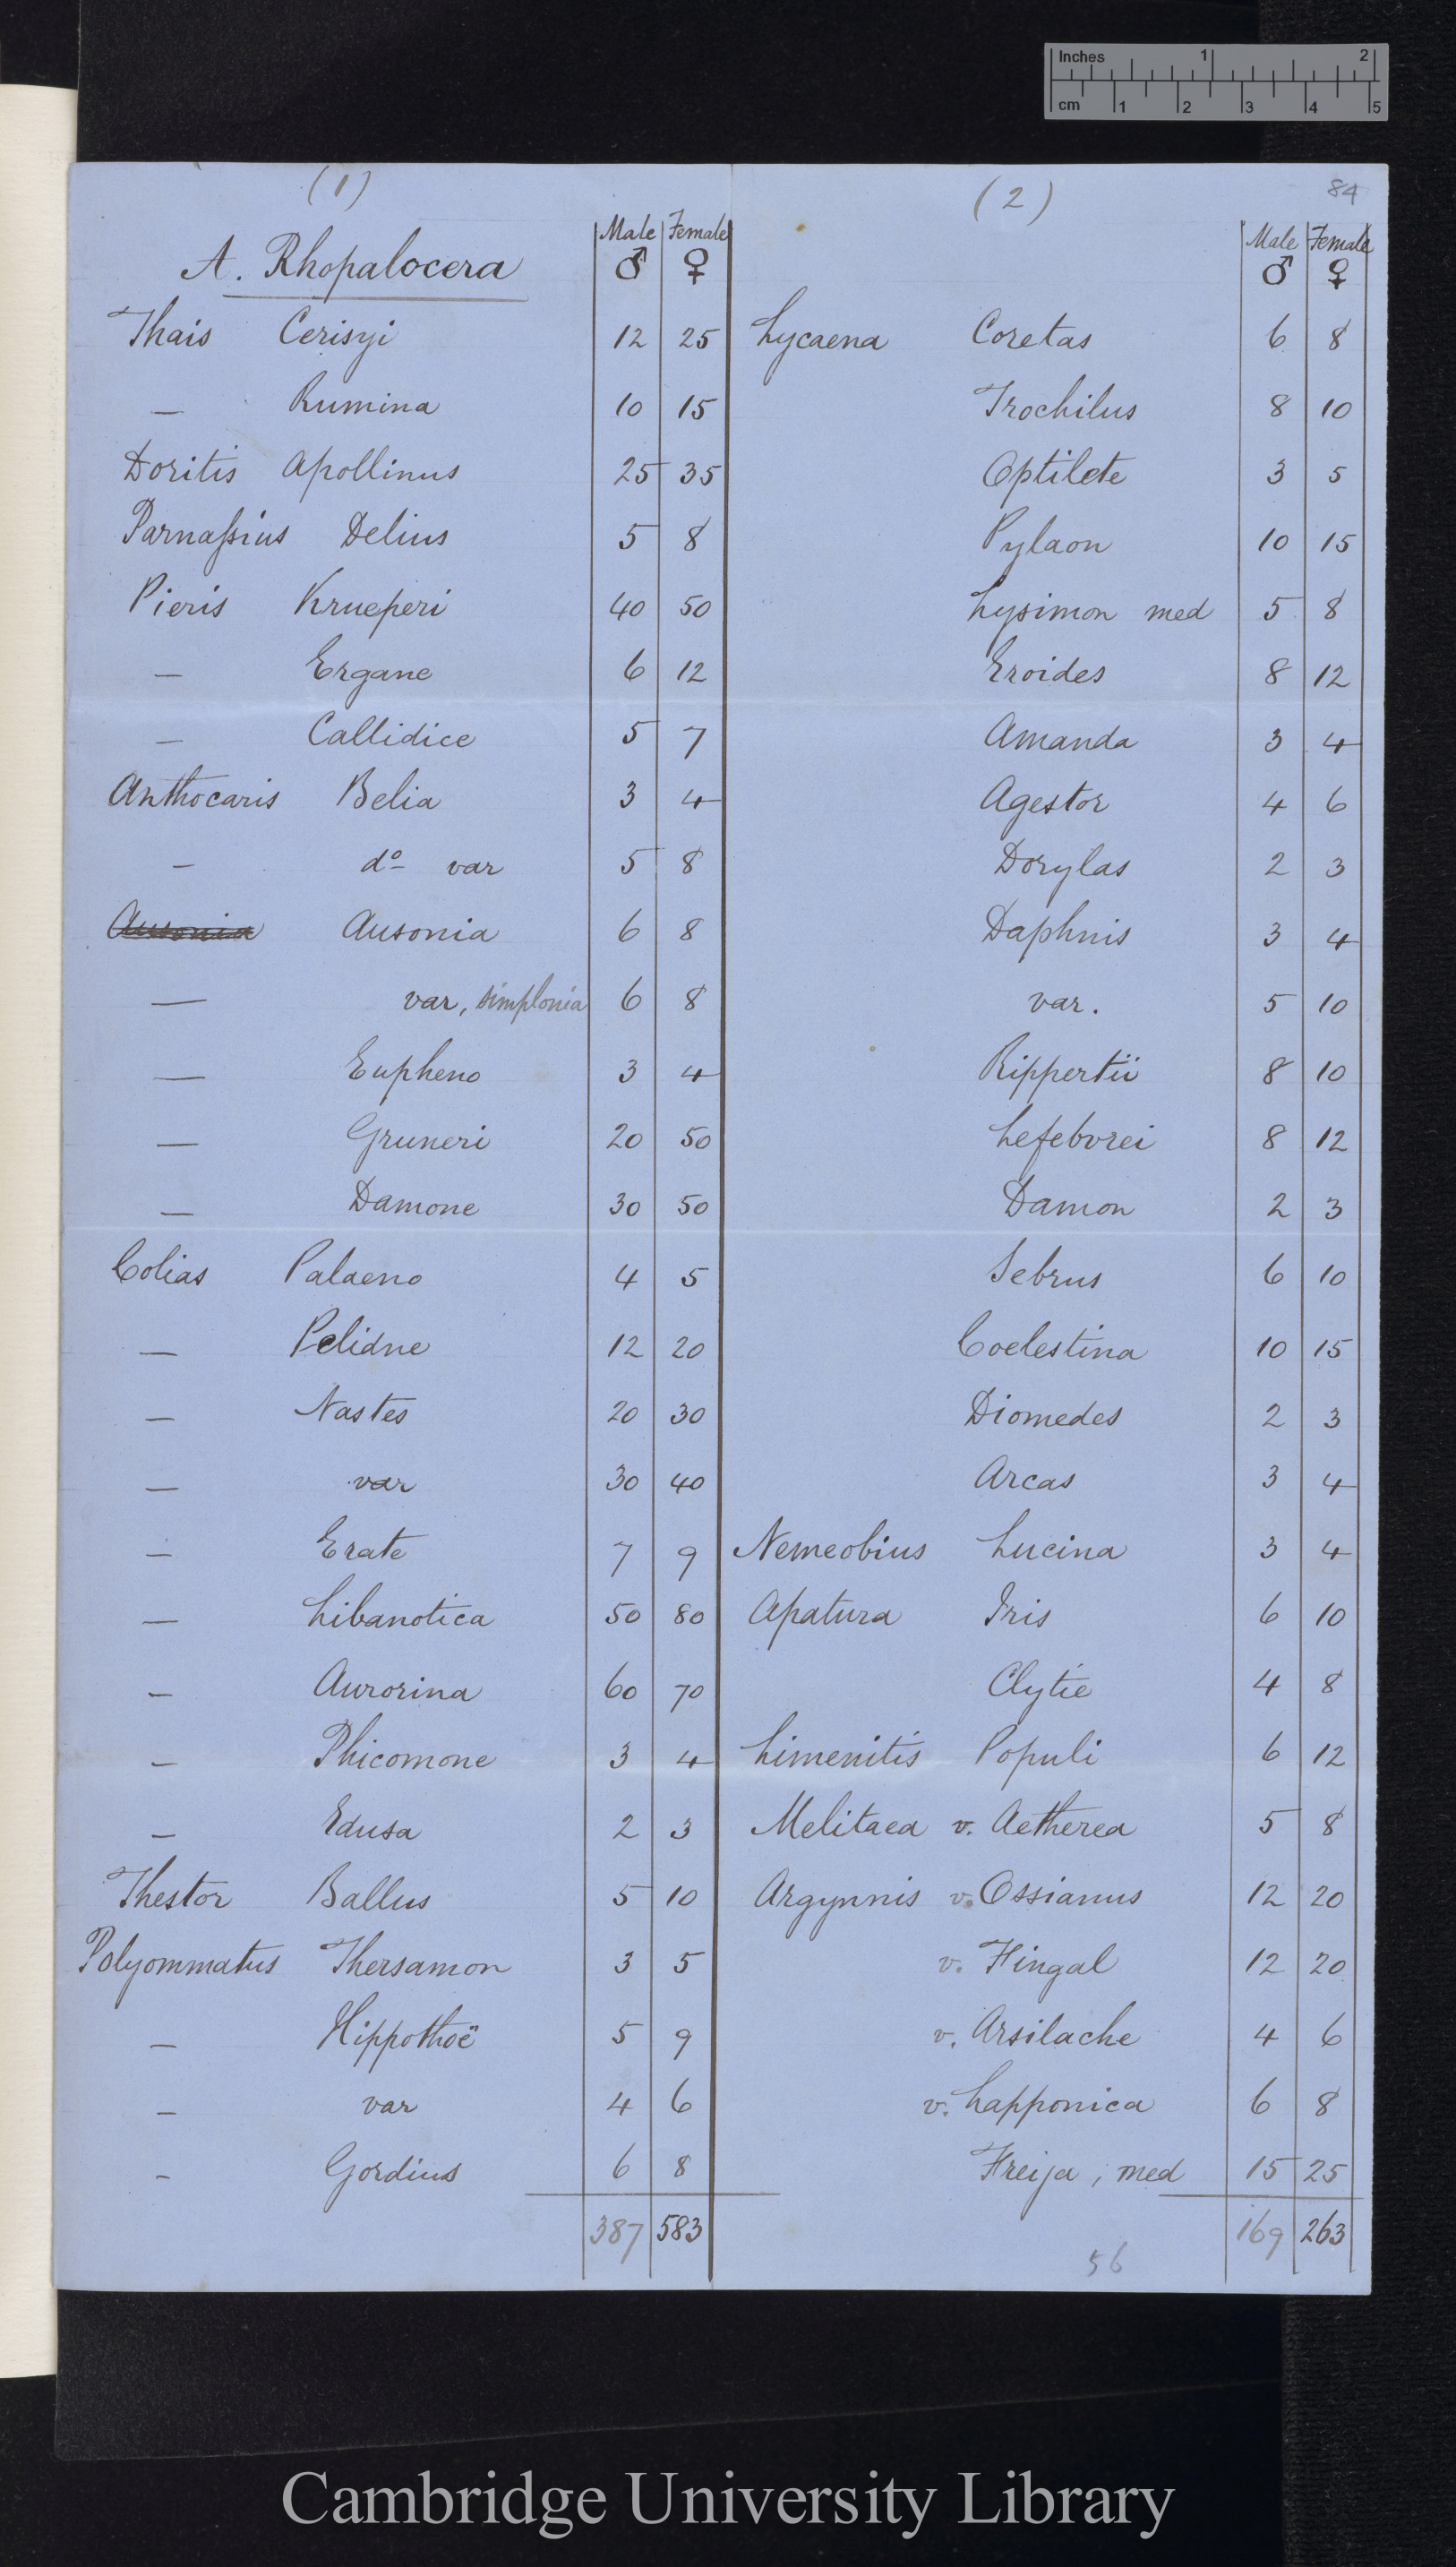 Inches 1 2
cm 1 2 3 4 5
84
(1)
Male Female
A. Rhopalocera ♂ ♀
Thais Cerisyi 12 25
— Rumina 10 15
Doritis Apollinus 25 35
Parnassius Delius 5 8
Pieris Krueperi 40 50
— Ergane 6 12
— Callidice 5 7
Anthocaris Belia 3 4
— do var 5 8
Ausonia Ausonia 6 8
— var, simplonia 6 8
— Eupheno 3 4
— Gruneri 20 50
— Damone 30 50
Colias Palaeno 4 5
— Pelidne 12 20
— Nastes 20 30
— var 30 40
— Erate 7 9
— Libanotica 50 80
— Aurorina 60 70
— Phicomone 3 4
— Edusa 2 3
Thestor Ballus 5 10
Polyommatus Thersamon 3 5
— Hippothoë 5 9
— var 4 6
— Gordius 6 8
387 583
(2)
Male Female
♂ ♀
Lycaena Coretas 6 8
Trochilus 8 10
Optilete 3 5
Pylaon 10 15
Lysimon med 5 8
Eroides 8 12
Amanda 3 4
Agestor 4 6
Dorylas 2 3
Daphnis 3 4
var. 5 10
Rippertii 8 10
Lefebvrei 8 12
Damon 2 3
Sebrus 6 10
Coelestina 10 15
Diomedes 2 3
Arcas 3 4
Nemeobius Lucina 3 4
Apatura Iris 6 10
Clytie 4 8
Limenitis Populi 6 12
Melitaea v. Aetherea 5 8
Argynnis v. Ossianus 12 20
v. Fingal 12 20
v. Arsilache 4 6
v. Lapponica 6 8
Freija, med 15 25
169 263
56
Cambridge University Library